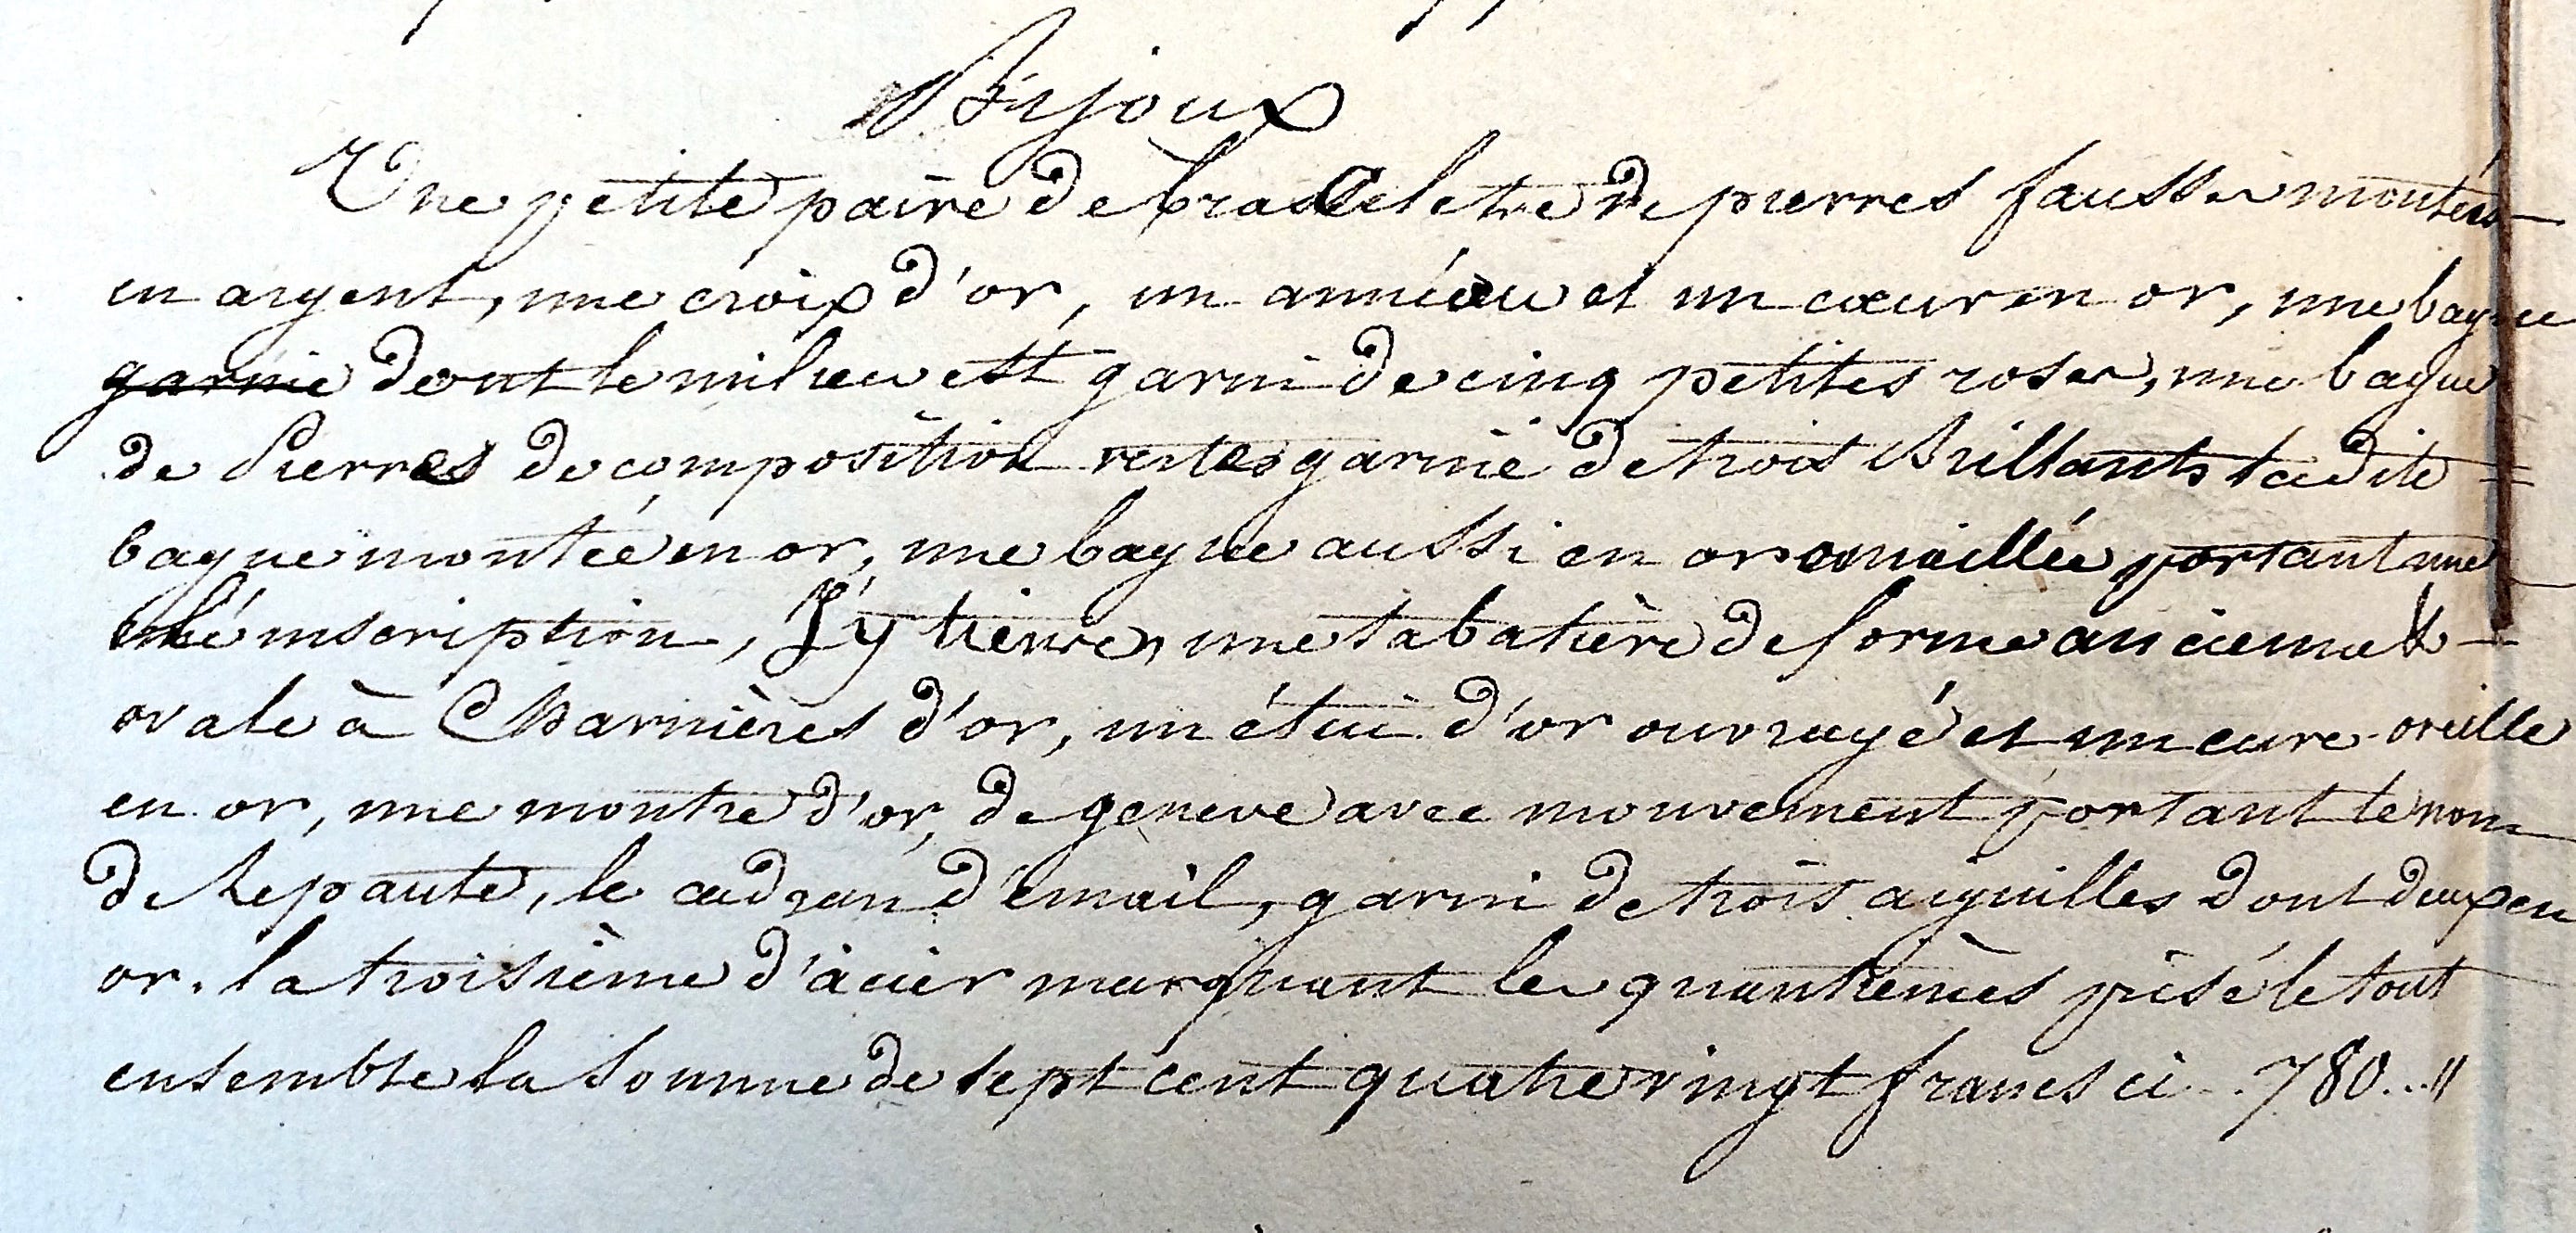 Bijoux
Une petite paire de bracelets de pierres fausses montées
en argent, une croix d'or, un annéau et un cœur en or, une bague
garnie dont le milieu est garni de cinq petites roses, une bague
de Pierres de composition vertes garnie de trois Brillants ladite =
bague montée en or, une bague aussi en or émaillée portant une
inscription, J'y tiens, une tabatière de forme ancienne &
ovale à Charnières d'or, un étui d'or ouvragé et un cure-oreille
en or, une montre d'or, de geneve avec mouvement portant le nom
de Lepaute, le cadran d'émail, garni de trois aiguilles dont deux en
or. la troisième d'àcier marquant les quantièmes prisé le tout
ensemble la somme de sept cent quatre vingt francs ci .. 780 .. "